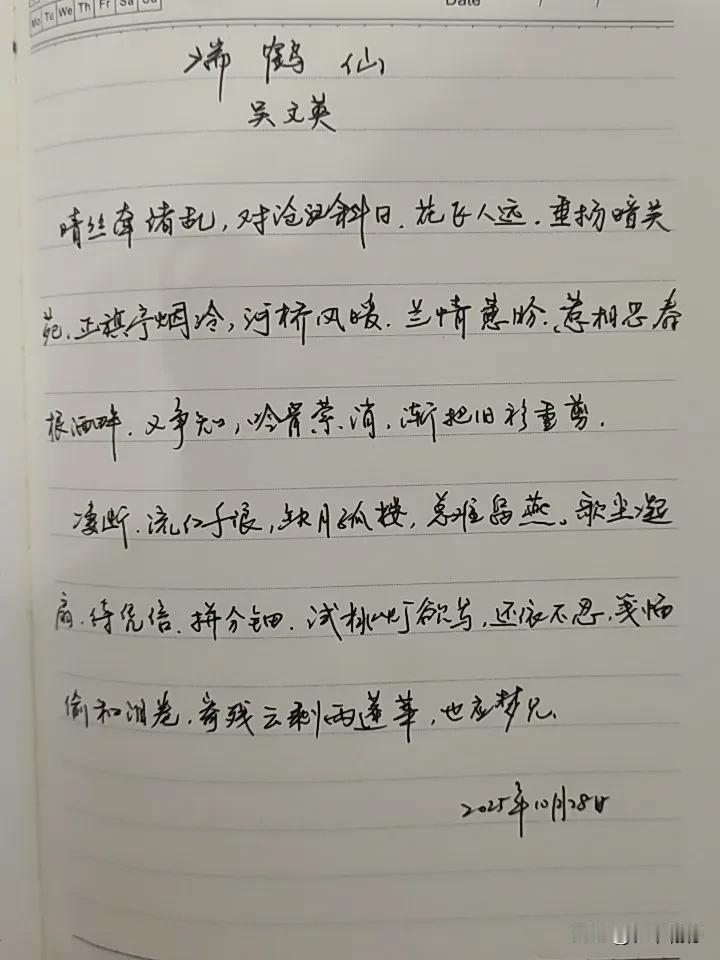 Mo Tu We Th Fr Sa Su
Date / /
瑞鹤仙
吴文英
晴丝牵绪乱,对沧江斜日.花飞人远.垂杨暗吴
苑.正旗亭烟冷,河桥风暖.兰情蕙盼.惹相思春
根酒畔.又争知,吟骨萦消,渐把旧衫重剪.
凄断.流红千浪,缺月孤楼,总难留燕。歌尘凝
扇.待凭信.拼分钿.试挑灯欲写,还依不忍.笺幅
偷和泪卷.寄残云剩雨蓬莱,也应梦见.
2025年10月28日